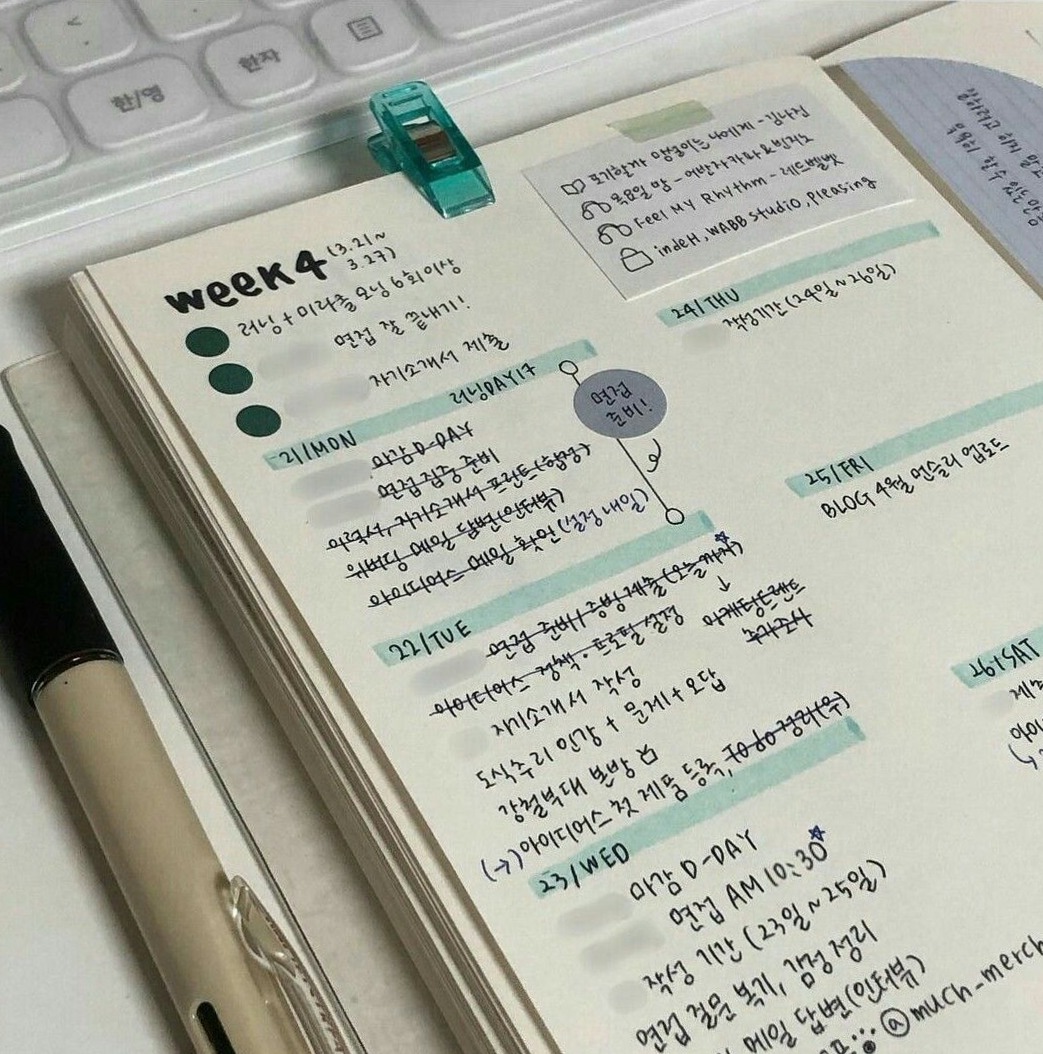 한/영
한자
week4 (3.21~3.27)
러닝+미라클 모닝 6회이상
면접 잘 끝내기!
자기소개서 제출
포기할까 망설이는 나에게 - 김나진
목요일 밤 - 어반자카파&빈지노
Feel MY Rhythm - 레드벨벳
indeH, WABB studio, Pleasing
21/MON 러닝DAY17
마감 D-DAY
면접 집중 준비
이력서, 자기소개서 프린트(합정)
위버딩 메일 답변(인터뷰)
아이디어스 메일 확인(설정 내일)
면접
준비!
22/TUE
면접 준비/증빙제출(오늘까지)
아이디어스 정책·프로필 설정
마케팅트렌드
추가조사
자기소개서 작성
도식수리 인강 + 문제+오답
강철부대 본방
(→)아이디어스 첫 제품 등록,
23/WED
마감 D-DAY
면접 AM 10:30
작성 기간 (23일~25일)
면접 질문 복기, 감정 정리
메일 답변(인터뷰)
@much_merch
24/THU
작성기간(24일~26일)
25/FRI
BLOG 4월 먼슬리 업로드
26/SAT